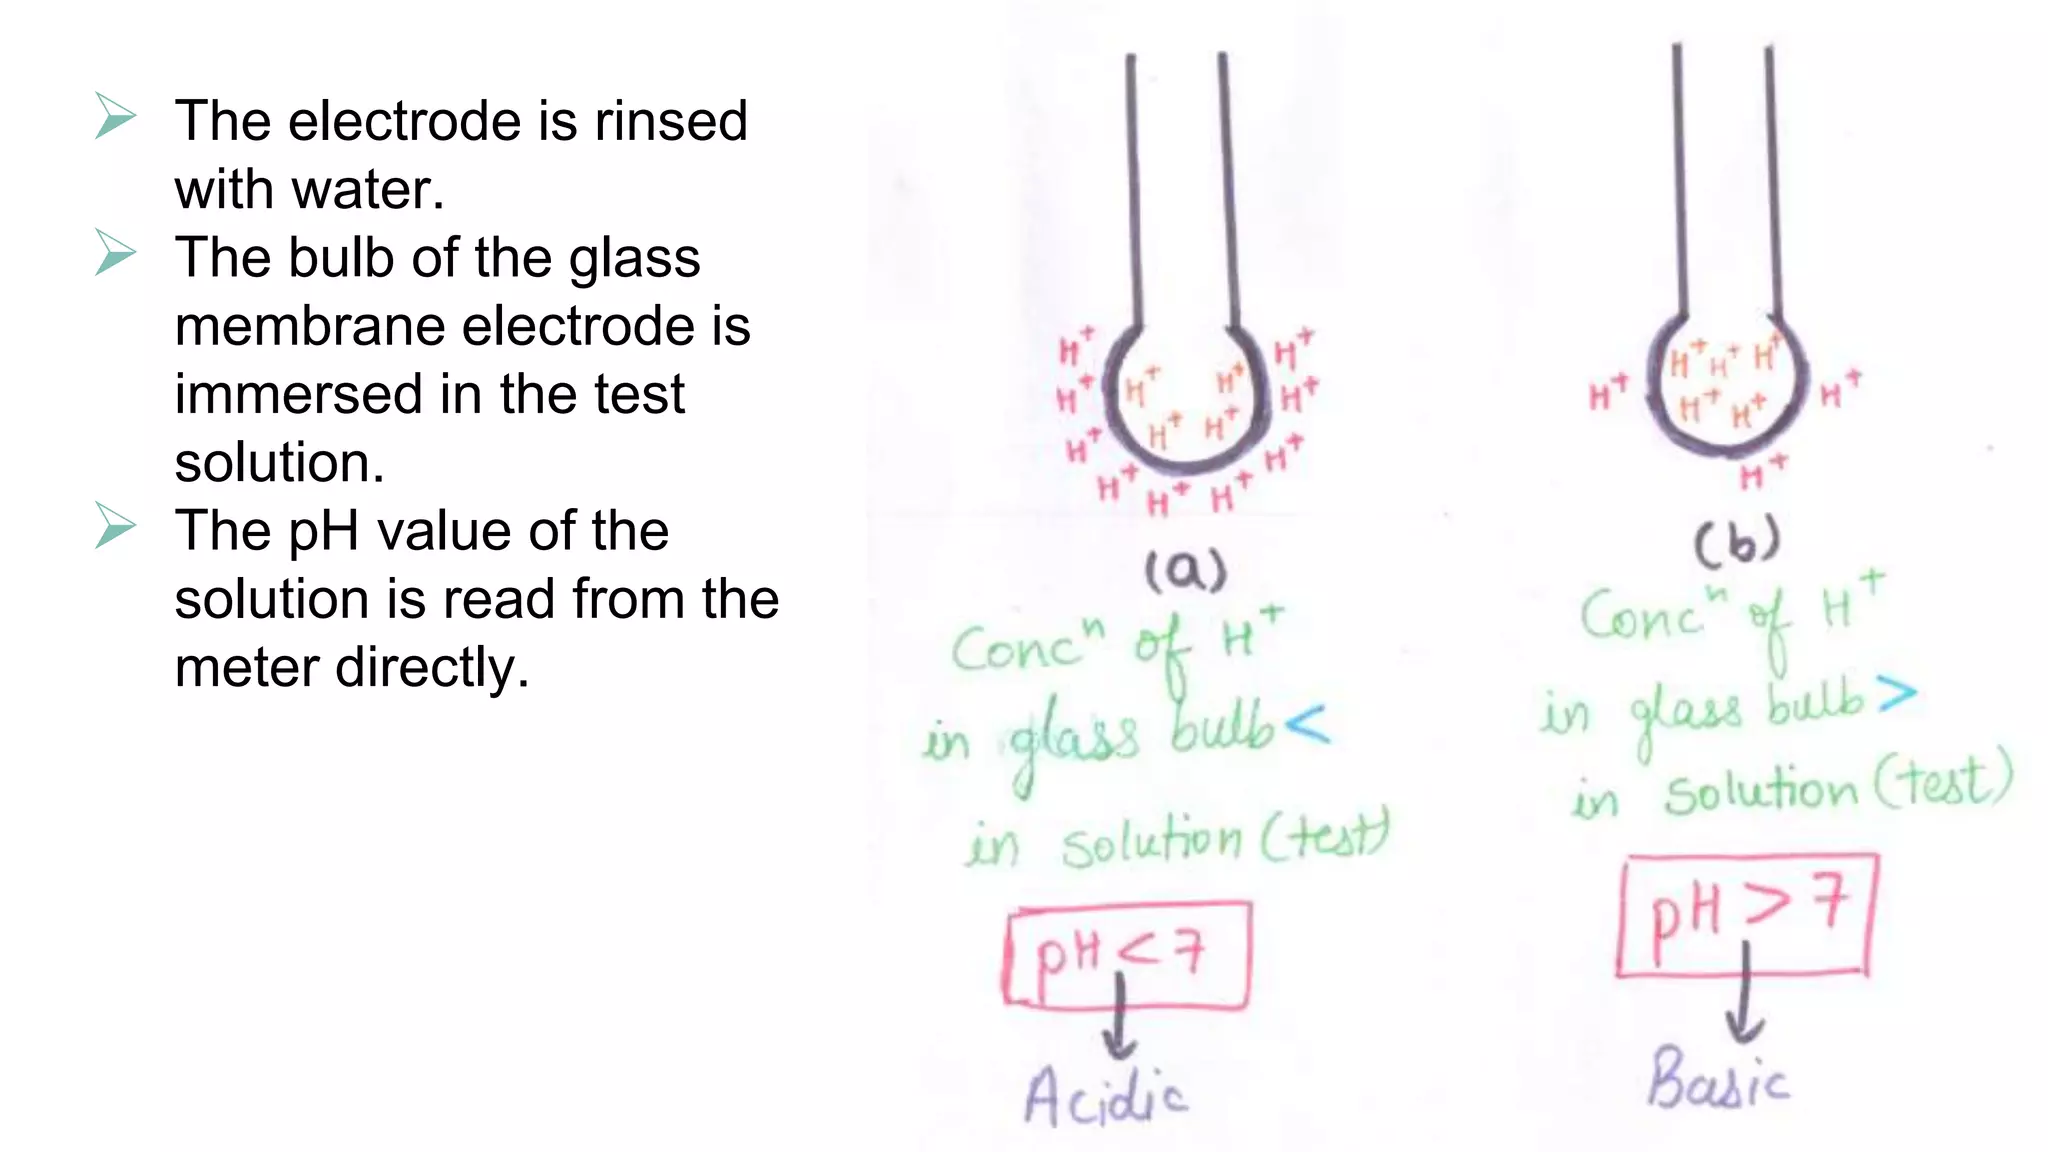 ➢ The electrode is rinsed
with water.
➢ The bulb of the glass
membrane electrode is
immersed in the test
solution.
➢ The pH value of the
solution is read from the
meter directly.
H⁺ H⁺
H⁺ H⁺ H⁺ H⁺
H⁺ H⁺ H⁺ H⁺
H⁺ H⁺ H⁺
(a)
Concⁿ of H⁺
in glass bulb <
in solution (test)
pH < 7
Acidic
H⁺ H⁺ H⁺
H⁺ H⁺ H⁺ H⁺
H⁺
(b)
Concⁿ of H⁺
in glass bulb >
in solution (test)
pH > 7
Basic